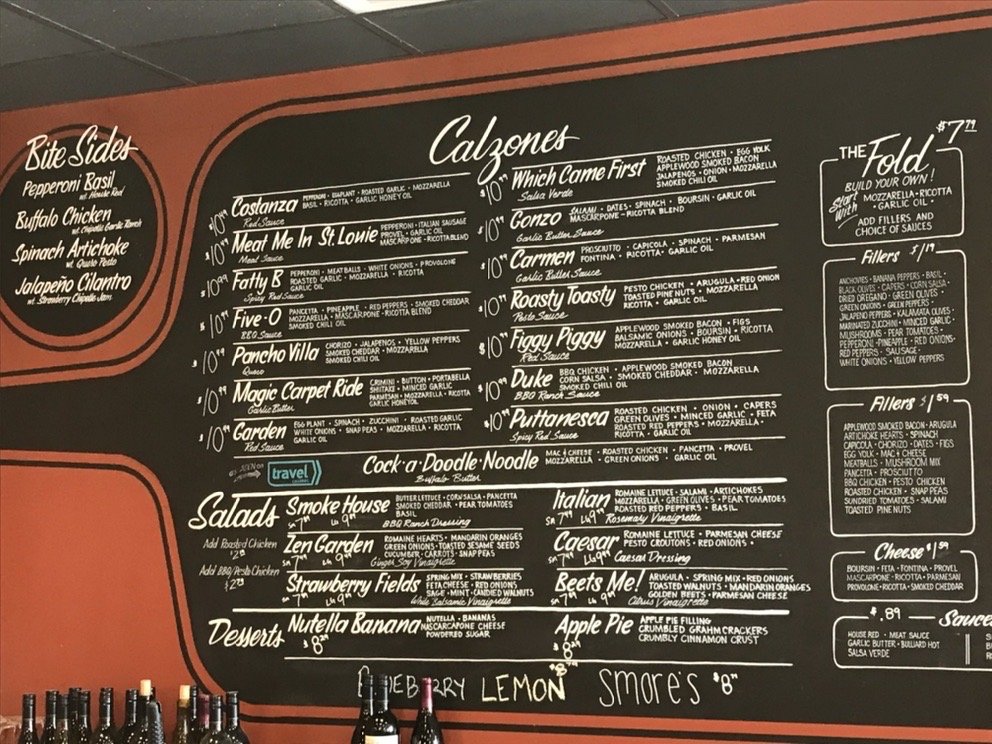 Bite Sides
Pepperoni Basil
w/ House Red
Buffalo Chicken
w/ Chipotle Garlic Ranch
Spinach Artichoke
Jalapeño Cilantro
w/ Strawberry Chipotle Jam
Calzones
Costanza
PEPPERONI · EGGPLANT · ROASTED GARLIC · MOZZARELLA
BASIL · RICOTTA · GARLIC HONEY OIL
Red Sauce
Meat Me In St. Louie
PEPPERONI · ITALIAN SAUSAGE
PROVEL · GARLIC OIL
MASCARPONE · RICOTTA BLEND
Meat Sauce
$10.99 Fatty B
PEPPERONI · MEATBALLS · WHITE ONIONS · PROVOLONE
ROASTED GARLIC · MOZZARELLA · RICOTTA
GARLIC OIL
Spicy Red Sauce
Five-O
PANCETTA · PINEAPPLE · RED PEPPERS · SMOKED CHEDDAR
MOZZARELLA · MASCARPONE · RICOTTA BLEND
SMOKED CHILI OIL
BBQ Sauce
Pancho Villa
CHORIZO · JALAPENOS · YELLOW PEPPERS
SMOKED CHEDDAR · MOZZARELLA
SMOKED CHILI OIL
Queso
Magic Carpet Ride
CRIMINI · BUTTON · PORTABELLA
SHIITAKE · MINCED GARLIC
PARMESAN · MOZZARELLA · RICOTTA
GARLIC HONEY OIL
Garlic Butter
Garden
EGG PLANT · SPINACH · ZUCCHINI · ROASTED GARLIC
WHITE ONIONS · SNAP PEAS · MOZZARELLA · RICOTTA
GARLIC OIL
Red Sauce
Which Came First
ROASTED CHICKEN · EGG YOLK
APPLEWOOD SMOKED BACON
JALAPENOS · ONION · MOZZARELLA
SMOKED CHILI OIL
Salsa Verde
Gonzo
SALAMI · DATES · SPINACH · BOURSIN · GARLIC OIL
MASCARPONE · RICOTTA BLEND
Garlic Butter Sauce
Carmen
PROSCIUTTO · CAPICOLA · SPINACH · PARMESAN
FONTINA · RICOTTA · GARLIC OIL
Garlic Butter Sauce
Roasty Toasty
PESTO CHICKEN · ARUGULA · RED ONION
TOASTED PINE NUTS · MOZZARELLA
RICOTTA · GARLIC OIL
Pesto Sauce
Figgy Piggy
APPLEWOOD SMOKED BACON · FIGS
BALSAMIC ONIONS · BOURSIN · RICOTTA
MOZZARELLA · GARLIC HONEY OIL
Red Sauce
Duke
BBQ CHICKEN · APPLEWOOD SMOKED BACON
CORN SALSA · SMOKED CHEDDAR · MOZZARELLA
SMOKED CHILI OIL
BBQ Ranch Sauce
Puttanesca
ROASTED CHICKEN · ONION · CAPERS
GREEN OLIVES · MINCED GARLIC · FETA
ROASTED RED PEPPERS · MOZZARELLA
RICOTTA · GARLIC OIL
Spicy Red Sauce
as seen on
travel
CHANNEL
Cock·a·Doodle·Noodle
MAC & CHEESE · ROASTED CHICKEN · PANCETTA · PROVEL
MOZZARELLA · GREEN ONIONS · GARLIC OIL
Buffalo Butter
Salads
Add Roasted Chicken
Add BBQ/Pesto Chicken
Smoke House
BUTTER LETTUCE · CORN SALSA · PANCETTA
SMOKED CHEDDAR · PEAR TOMATOES
BASIL
BBQ Ranch Dressing
Zen Garden
ROMAINE HEARTS · MANDARIN ORANGES
GREEN ONIONS · TOASTED SESAME SEEDS
CUCUMBER · CARROTS · SNAP PEAS
Ginger Soy Vinaigrette
Strawberry Fields
SPRING MIX · STRAWBERRIES
FETA CHEESE · RED ONIONS
SAGE · MINT · CANDIED WALNUTS
White Balsamic Vinaigrette
Italian
ROMAINE LETTUCE · SALAMI · ARTICHOKES
MOZZARELLA · GREEN OLIVES · PEAR TOMATOES
ROASTED RED PEPPERS · BASIL
Rosemary Vinaigrette
Caesar
ROMAINE LETTUCE · PARMESAN CHEESE
PESTO CROUTONS · RED ONIONS
Caesar Dressing
Beets Me!
ARUGULA · SPRING MIX · RED ONIONS
TOASTED WALNUTS · MANDARIN ORANGES
GOLDEN BEETS · PARMESAN CHEESE
Citrus Vinaigrette
Desserts
Nutella Banana
NUTELLA · BANANAS
MASCARCAPONE CHEESE
POWDERED SUGAR
Apple Pie
APPLE PIE FILLING
CRUMBLED GRAHM CRACKERS
CRUMBLY CINNAMON CRUST
LEMON SMORE'S
THE Fold $7.79
BUILD YOUR OWN!
Start With MOZZARELLA · RICOTTA
GARLIC OIL ·
ADD FILLERS AND
CHOICE OF SAUCES
Fillers $1.19
ANCHOVIES · BANANA PEPPERS · BASIL ·
BLACK OLIVES · CAPERS · CORN SALSA ·
DRIED OREGANO · GREEN OLIVES ·
GREEN ONIONS · GREEN PEPPERS ·
JALAPENO PEPPERS · KALAMATA OLIVES
MARINATED ZUCCHINI · MINCED GARLIC ·
MUSHROOMS · PEAR TOMATOES ·
PEPPERONI · PINEAPPLE · RED ONIONS ·
RED PEPPERS · SAUSAGE ·
WHITE ONIONS · YELLOW PEPPERS
Fillers $1.59
APPLEWOOD SMOKED BACON · ARUGULA
ARTICHOKE HEARTS · SPINACH
CAPICOLA · CHORIZO · DATES · FIGS
EGG YOLK · MAC & CHEESE
MEATBALLS · MUSHROOM MIX
PANCETTA · PROSCIUTTO
BBQ CHICKEN · PESTO CHICKEN
ROASTED CHICKEN · SNAP PEAS
SUNDRIED TOMATOES · SALAMI
TOASTED PINE NUTS
Cheese $1.59
BOURSIN · FETA · FONTINA · PROVEL
MASCARPONE · RICOTTA · PARMESAN
PROVOLONE · RICOTTA · SMOKED CHEDDAR
$.89 Sauce
HOUSE RED · MEAT SAUCE
GARLIC BUTTER · BULLIARD HOT
SALSA VERDE